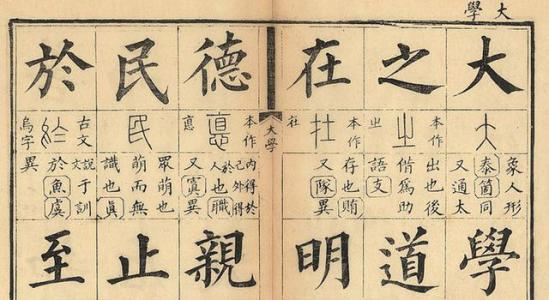 大學
大
本作
象人形
泰箇同
又通太
學
之
本作㞢
出也後
借為助
語支
道
在
本作
存也賄
又隊異
明
大學
德
本作悳
內得於
己外得
於人也職
又寘異
親
民
眾萌也
萌而無
識也真
止
於
古文
烏字
說文于訓
於魚虞
異
至